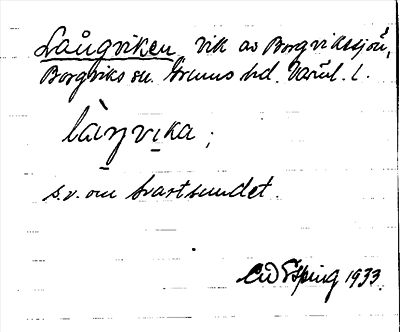 Långviken vik av Borgvikssjön,
Borgviks sn. Grums hd. Värml. l.
làŋvika;
s.v. om Svartsundet.
1933.